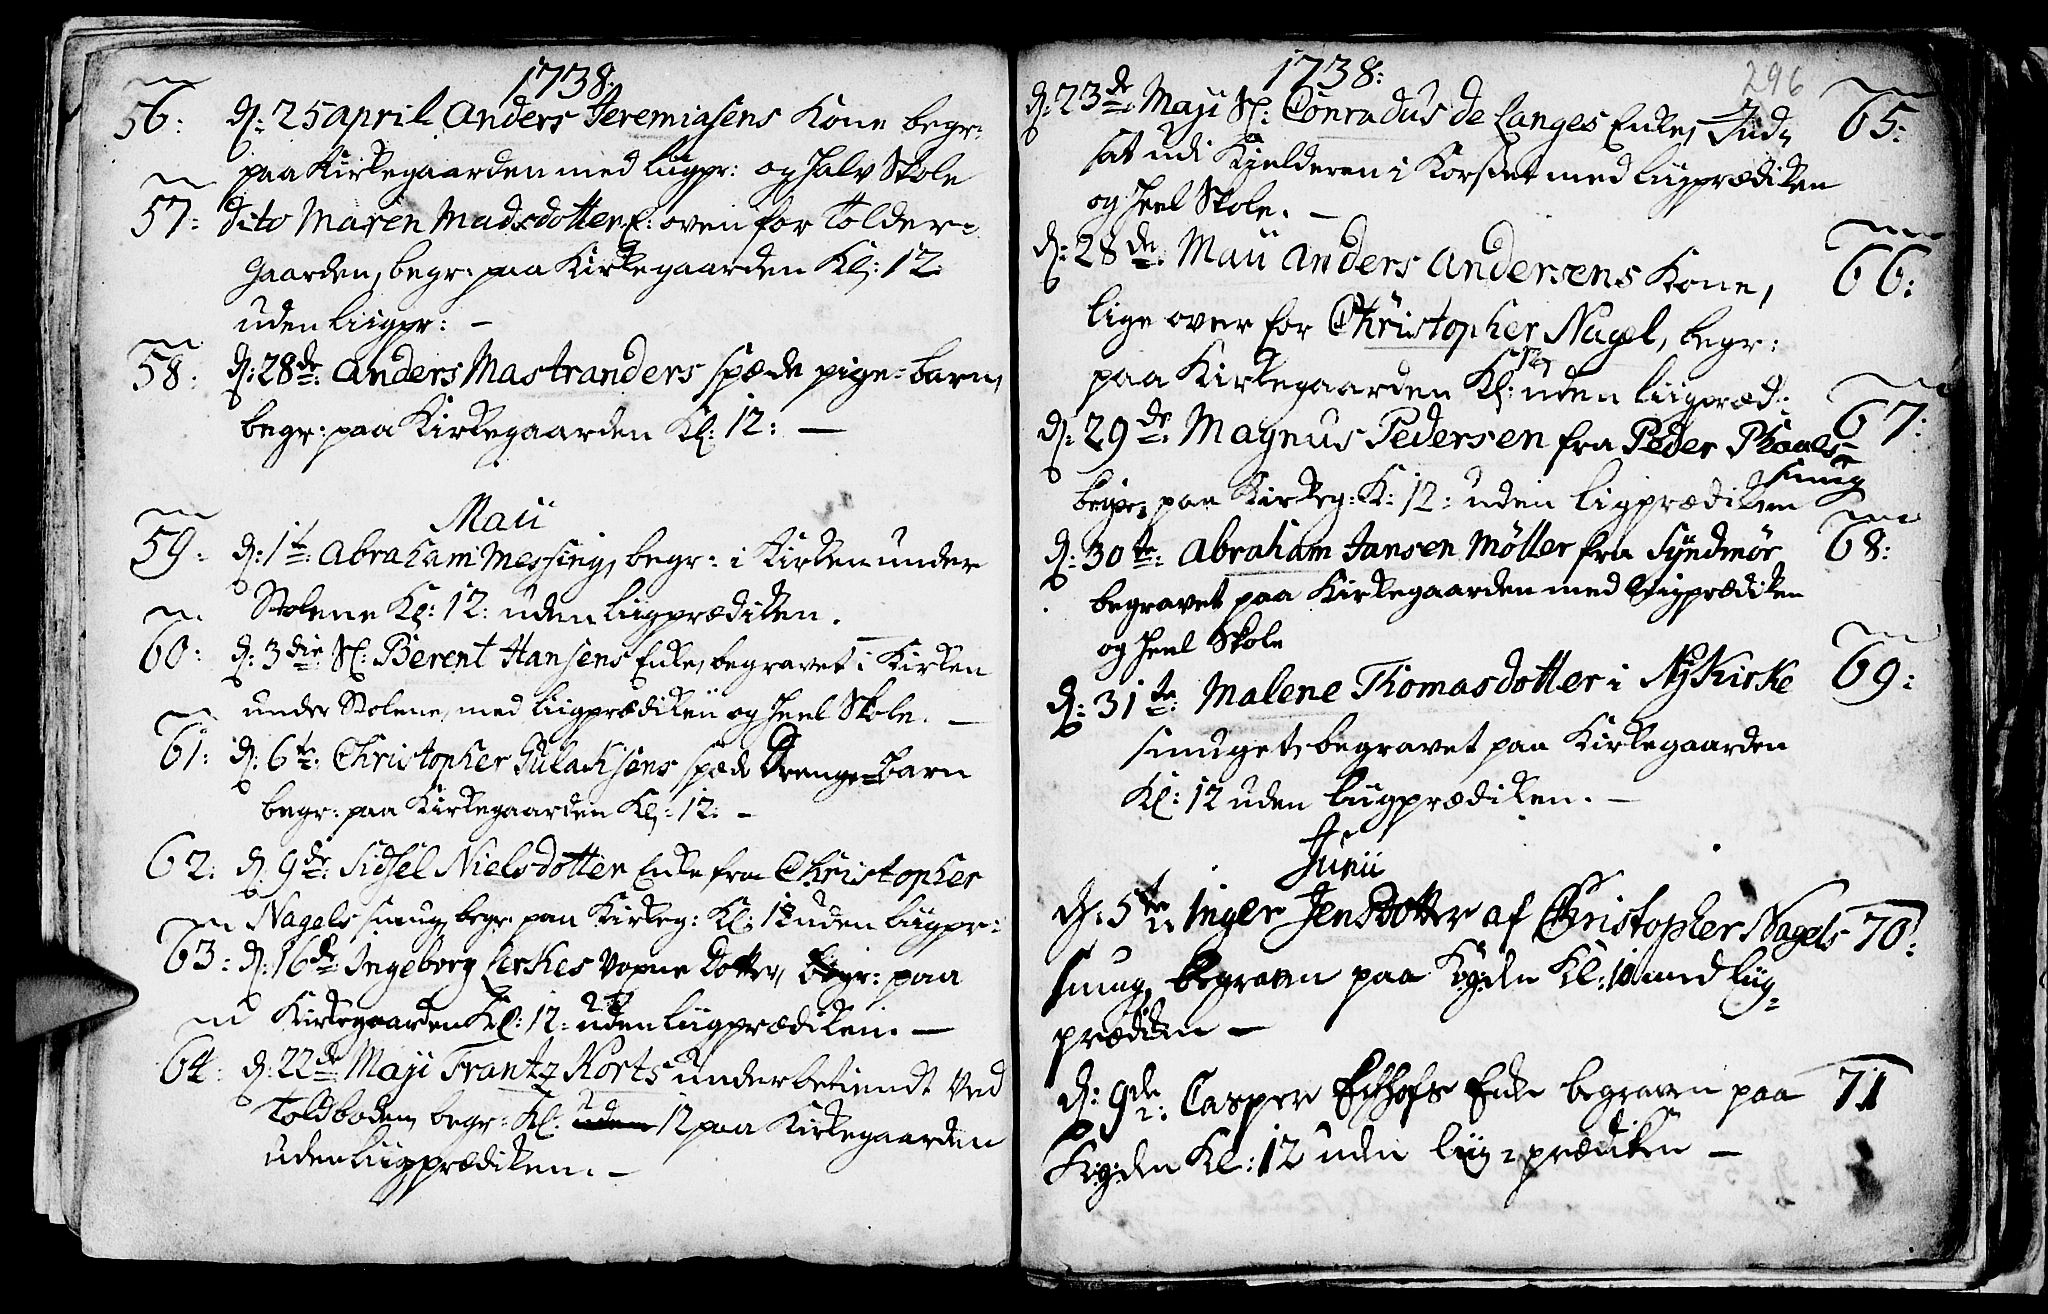 1738:
56: d: 25 april Anders Jeremiasens Kone begr:
paa Kirkegaarden med liigpr: og halv Skole
57: dito Maren Madsdotter E: oven for Tolder-
gaarden, begr: paa Kirkegaarden Kl: 12:
uden liigpr: –
58: d: 28de: Anders Mastranders spæde pige-barn,
begr: paa Kirkegaarden Kl: 12: –
Maii
59: d: 1te: Abraham Messing, begr: i Kirken under
Stolene Kl: 12: uden liigprædiken.
60: d: 3die: Sl: Berent Hansens Enke, begravet i Kirken
under Stolene, med liigprædiken og heel Skole. –
61: d: 6te: Christopher Gulacksens spæde Drenge-barn
begr: paa Kirkegaarden Kl: 12: –
62: d: 9de: Sidsel Nielsdotter Enke fra Christopher
Nagels smug, begr: paa Kirkeg: Kl: 12 uden liigpr:
63: d: 16de: Ingeborg Lerkes Vogne Dotter, begr: paa
Kirkegaarden Kl: 12: uden liigprædiken. –
64: d: 22de Maji Frantz Korts underbetiendt ved
Toldboden, begr: Kl: uden 12 paa Kirkegaarden
uden liigprædiken. –
1738:
296
d: 23de: Maji Sl: Conradus de Langes Enke, Ind- 65:
sat udi Kjelderen i Korset med liigprædiken
og heel Skole. –
d: 28de: Maii Anders Andersens Kone, 66:
lige over for Christopher Nagel, begr:
12
paa Kirkegaarden Kl: uden liigpræd:
d: 29de: Magnus Pedersen fra Peder Thaaels- 67:
smug
begr: paa Kirkeg: K: 12: uden ligprædiken
d: 30te: Abraham Jansen Møller fra Syndmør 68:
begravet paa Kirkegaarden med liigprædiken
og heel Skole
d: 31te: Malene Thomasdotter i NyKirke 69:
smuget, begravet paa Kirkegaarden
Kl: 12 uden liigprædiken. –
Junii
d: 5te Inger Jensdotter af Christopher Nagels 70:
smug, begraven paa Kgden Kl: 10 med liig-
prædiken –
d: 9de: Casper Eckhofs Enke begraven paa 71
Kgden Kl: 12 uden liig-prædiken –